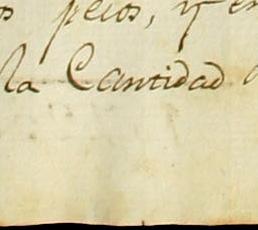 os pesos, y en
la Cantidad